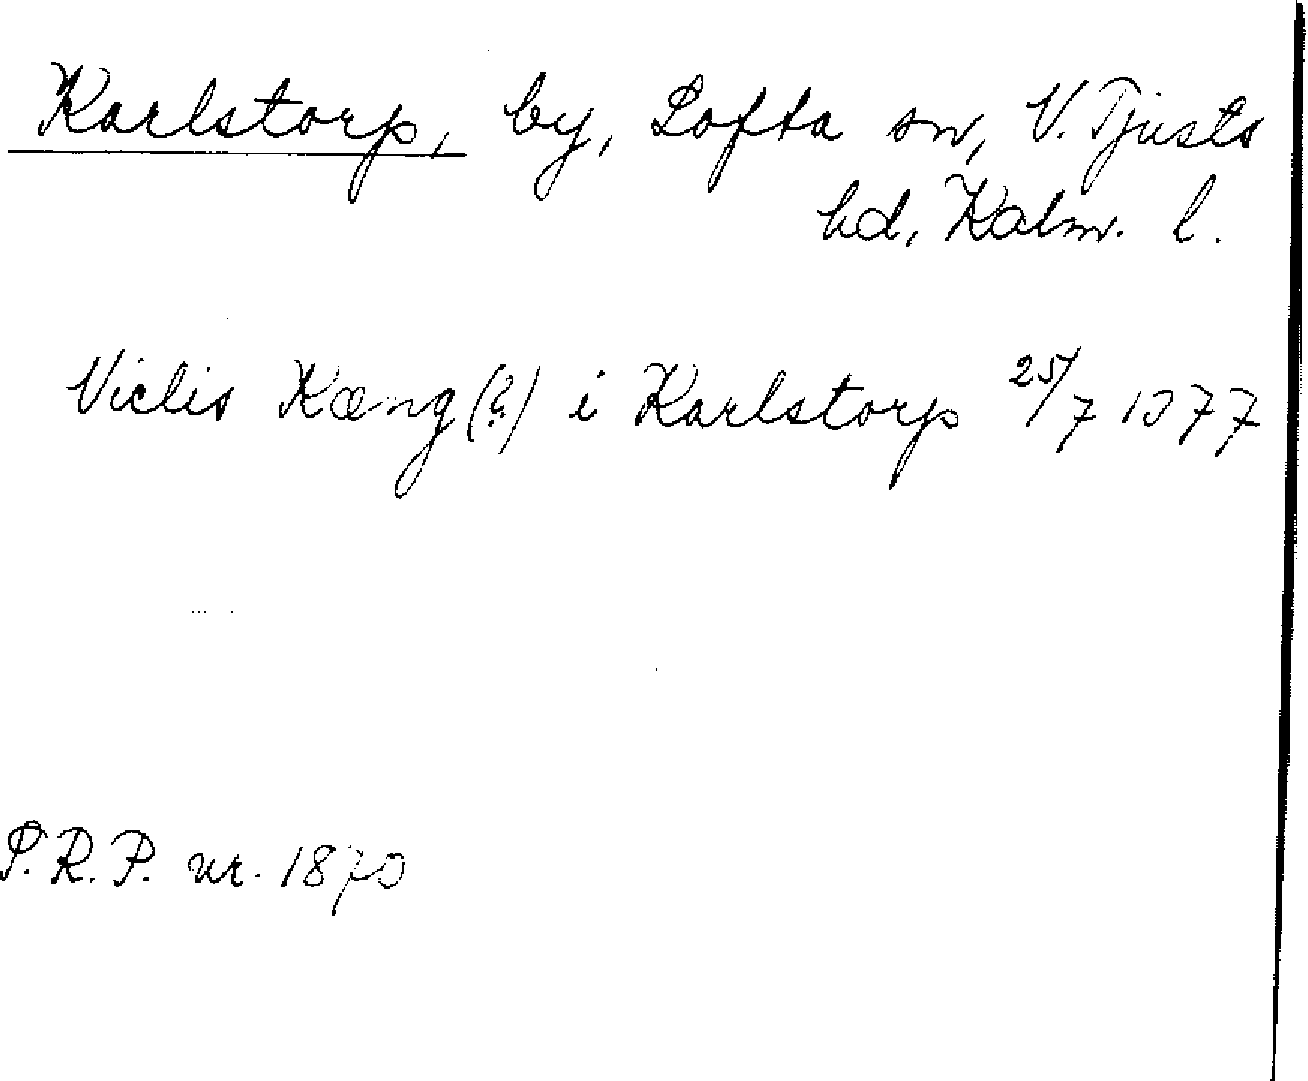 Karlstorp, by, Lofta sn, V. Tjusts
hd, Kalm. l.
Niclis Kæng(?) i Karlstorp 25/7 1377
S.R.P. nr. 1870